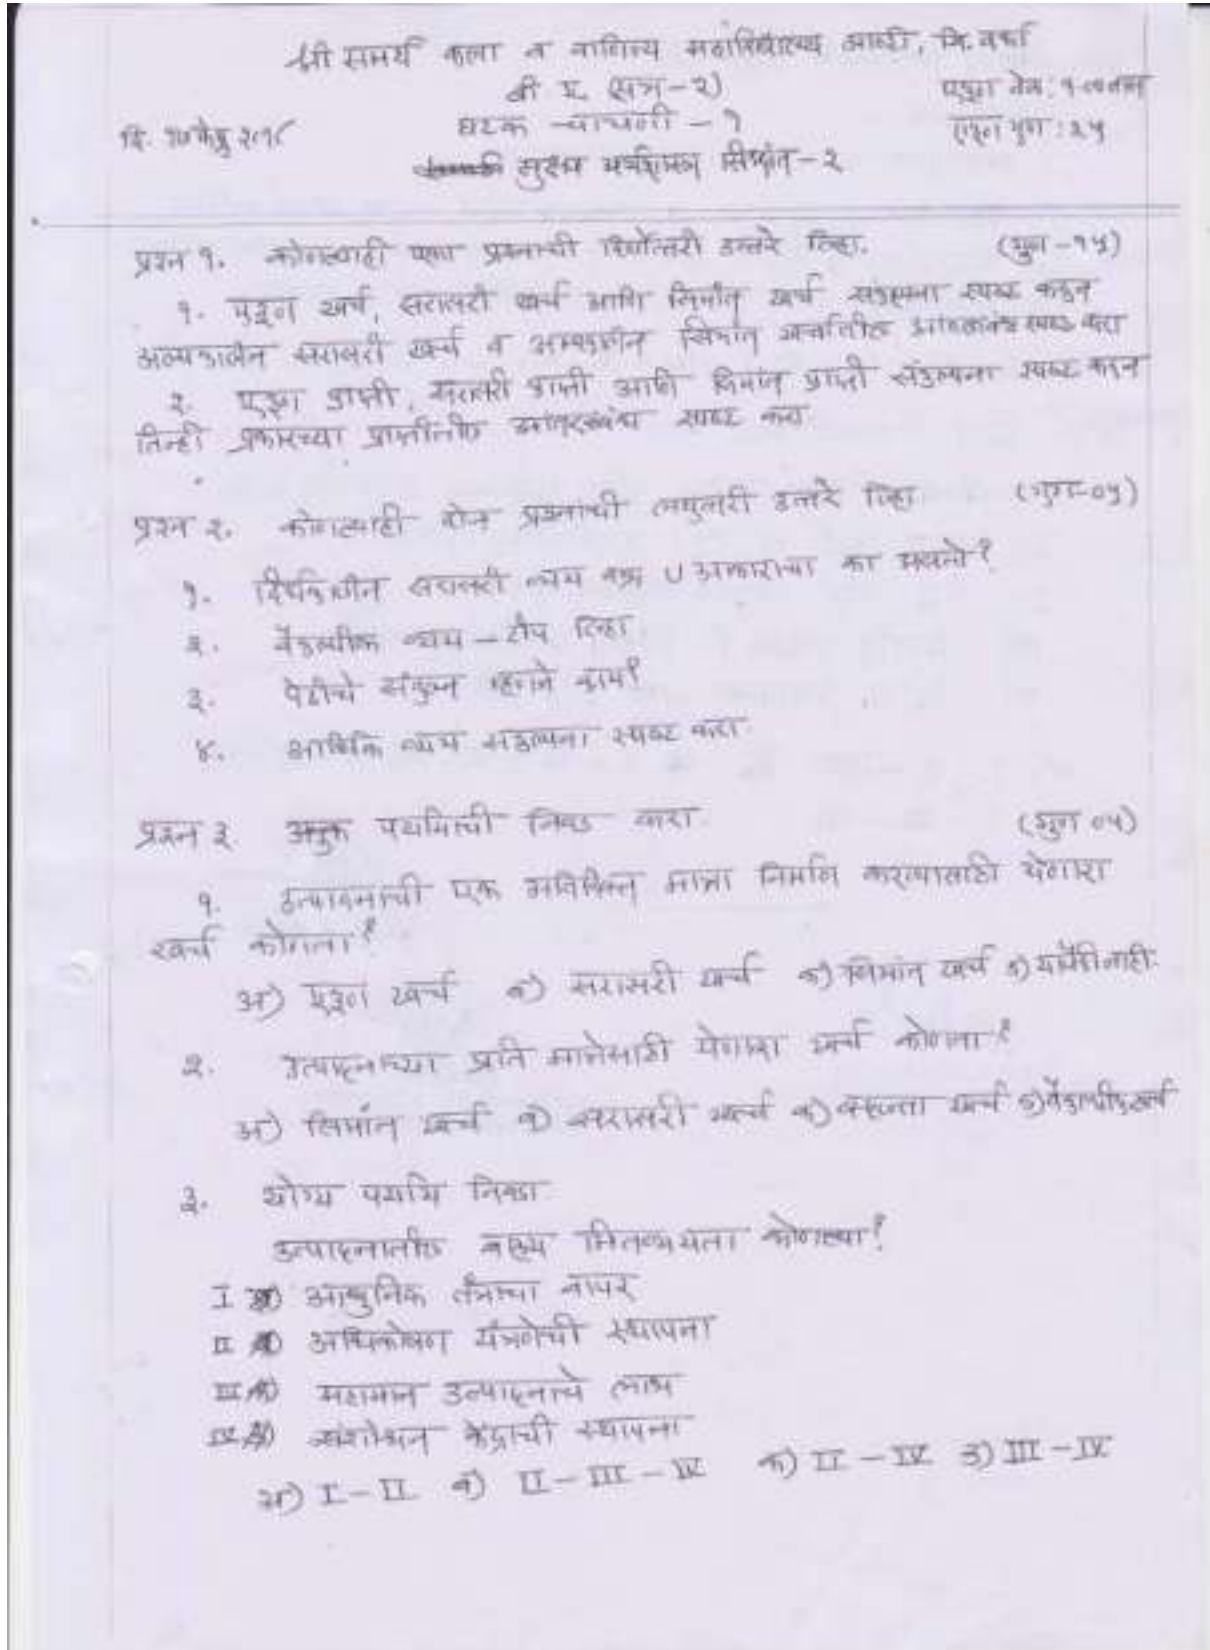 श्री समर्थ कला व वाणिज्य महाविद्यालय आष्टी, जि. वर्धा
बी ए (सत्र-२)
एकूण वेळ: १.०० तास
दि. १७ फेब्रु २०१८
घटक चाचणी - १
एकूण गुण: २५
सुक्ष्म अर्थशास्त्र सिद्धांत-२
प्रश्न १. कोणत्याही एका प्रश्नाची दिर्घोत्तरी उत्तरे लिहा. (गुण-१५)
१. एकूण खर्च, सरासरी खर्च आणि सिमांत खर्च संकल्पना स्पष्ट करून
अल्पकालीन सरासरी खर्च व अल्पकालीन सिमांत खर्चातील आंतरसंबंध स्पष्ट करा
२. एकूण प्राप्ती, सरासरी प्राप्ती आणि सिमांत प्राप्ती संकल्पना स्पष्ट करून
तिन्ही प्रकारच्या प्राप्तीतील आंतरसंबंध स्पष्ट करा.
प्रश्न २. कोणत्याही दोन प्रश्नांची लघुत्तरी उत्तरे लिहा (गुण-०५)
१. दिर्घकालीन सरासरी व्यय वक्र U आकाराचा का असतो?
२. वैकल्पीक व्यय - टीप लिहा.
३. पेढीचे संतुलन म्हणजे काय?
४. आर्थिक व्यय संकल्पना स्पष्ट करा.
प्रश्न ३. अचुक पर्यायाची निवड करा. (गुण ०५)
१. उत्पादनाची एक अतिरिक्त मात्रा निर्माण करण्यासाठी येणारा
खर्च कोणता?
अ) एकूण खर्च ब) सरासरी खर्च क) सिमांत खर्च ड) यापैकी नाही.
२. उत्पादनाच्या प्रति मात्रेसाठी येणारा खर्च कोणता?
अ) सिमांत खर्च ब) सरासरी खर्च क) बदलता खर्च ड) वैकल्पीक खर्च
३. योग्य पर्याय निवडा
उत्पादनातील बाह्य मितव्ययता कोणत्या?
I आधुनिक तंत्राचा वापर
II अधिकोषण यंत्रणेची स्थापना
III महामान उत्पादनाचे लाभ
IV संशोधन केंद्राची स्थापना
अ) I - II ब) II - III - IV क) II - IV ड) III - IV